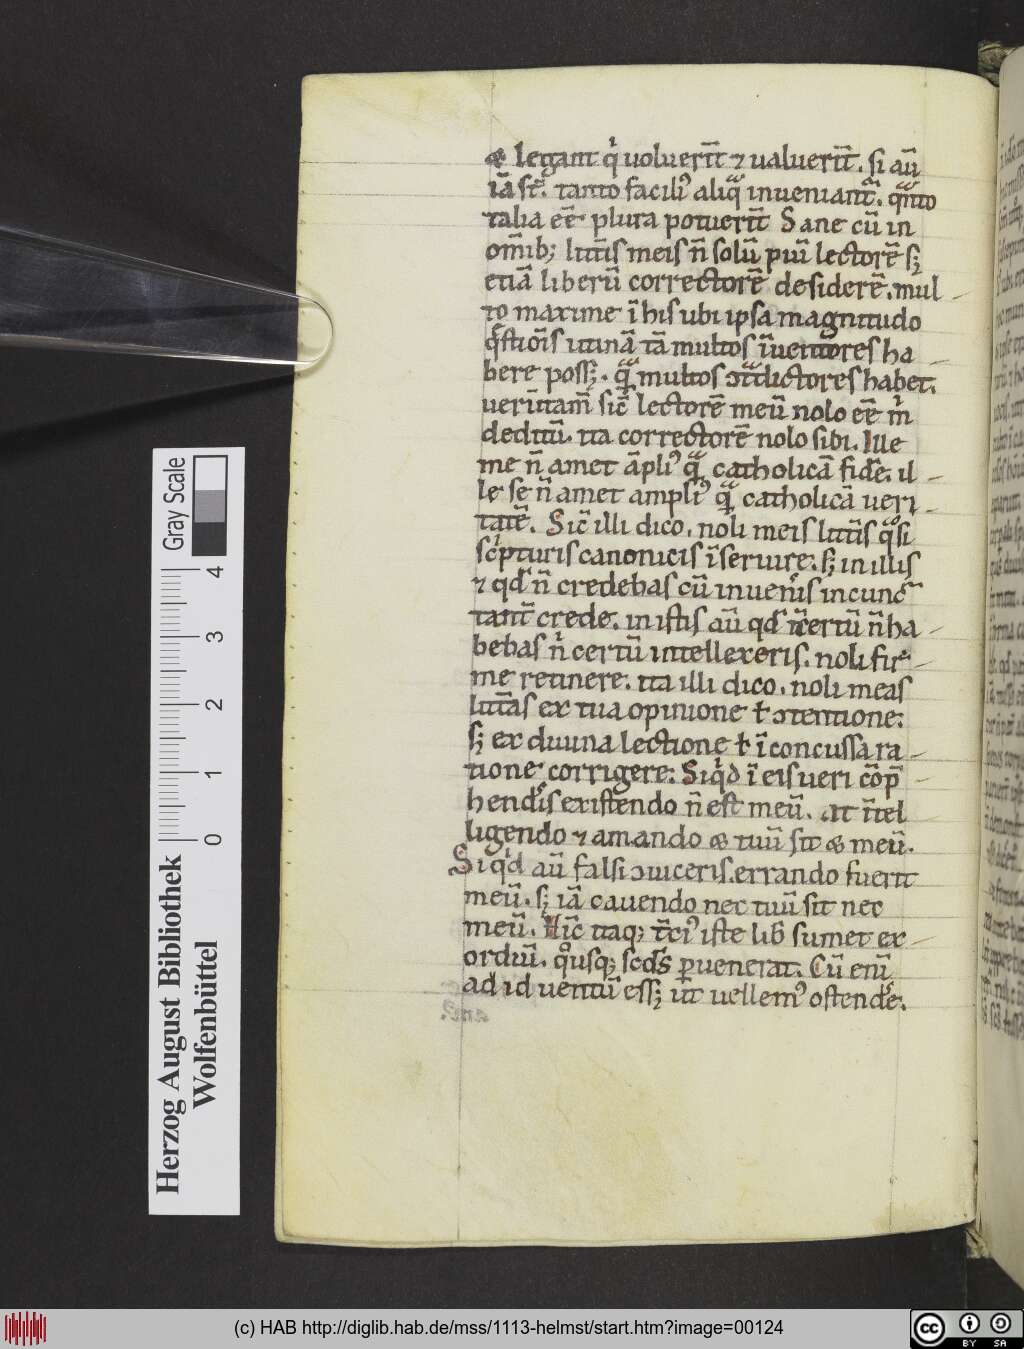 & legant q̍ uoluer̄t ⁊ ualuer̄t. si aū
iā st̄. tanto facili᾽ aliq̄ inueniant̄. qᷓnto
talia eē plura potuer̄t Sane cū in
om̄ib; litt̄is meis n̄ solū piū lectorē sꝫ
etiā liberū correctorē desiderē. mul
to maxime ī his ubi ipsa magnitudo
q̄stiōis utinā tā multos īuentores ha
bere possꝫ. qᷓ multos ↄtᷓdictores habet.
uerūtam̄ sic̄ lectorē meū nolo eē m̍
deditū. ita correctorē nolo sibi. Ille
me n̄ amet āpli᾽ qᷓ catholicā fidē. il
le se n̄ amet ampli᾽ qᷓ catholicā ueri
tatē. Sic̄ illi dico. noli meis litt̄is qᷓsi
sc̍pturis canonicis īseruire. sꝫ in illis
⁊ qd̄ n̄ credebas cū inuen̍is incunc
tant̄ crede. in istis aū qd̄ īcertū n̄ ha
bebas n̍ certū intellexeris. noli fir
me retinere. ita illi dico. noli meas
litt̄as ex tua opinione ł ↄtentione.
sꝫ ex diuina lectione ł īconcussa ra
tione corrigere. Siq̍d ī eis ueri cōp̄
hendis existendo n̄ est meū. At īntel
ligendo ⁊ amando & tuū sit & meū.
Siq̍d aū falsi ↄuiceris. errando fuerit
meū. sꝫ iā cauendo nec tuū sit nec
meū. Hic̄ itaq; t̄ci᾽ iste lib̄ sumet ex
ordiū. qͦusq; scd̄s ꝑuenerat. Cū enī
ad id uentū essꝫ ut uellem᾽ ostendē.
Gray Scale
0 1 2 3 4
Herzog August Bibliothek
Wolfenbüttel
(c) HAB http://diglib.hab.de/mss/1113-helmst/start.htm?image=00124
cc BY SA